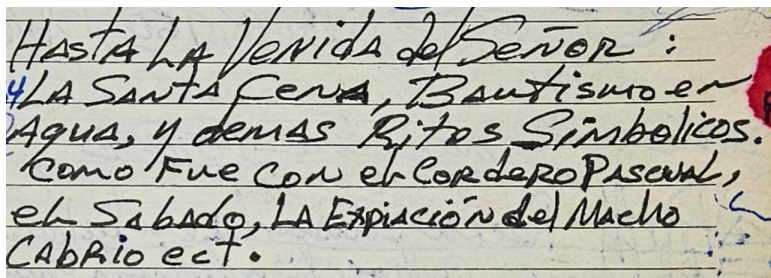 Hasta La Venida del Señor :
La Santa Cena, Bautismo en
Agua, y demas Ritos Simbolicos.
Como Fue Con el Cordero Pascual,
el Sabado, La Expiación del Macho
Cabrio ect.